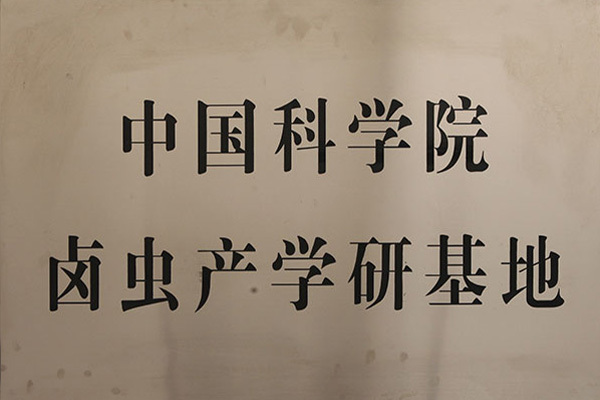 中国科学院
卤虫产学研基地